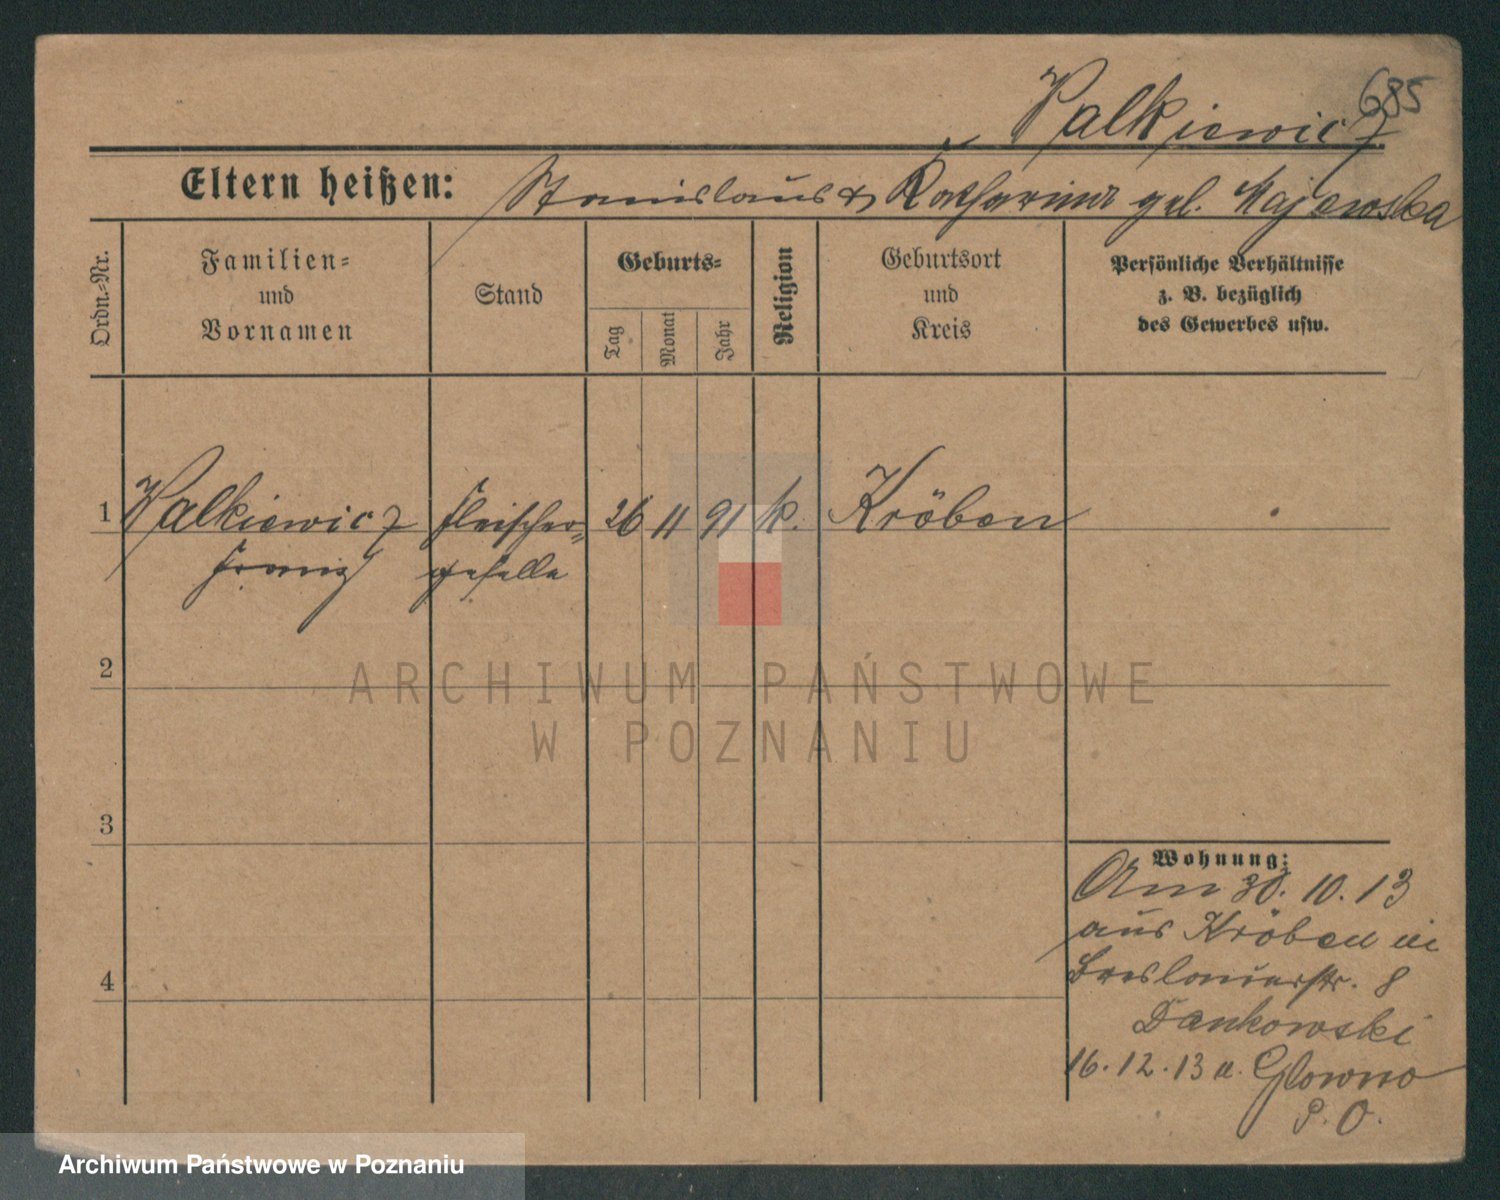 685
Walkiewicz
Eltern heißen: Stanislaus & Katharina geb. Majewska
Ordn.-Nr.
Familien-
und
Vornamen
Stand
Geburts-
Tag
Monat
Jahr
Religion
Geburtsort
und
Kreis
Persönliche Verhältnisse
z. B. bezüglich
des Gewerbes usw.
1 Walkiewicz Fleischer- 26 11 91 k. Kröben
Franz geselle
2
3
4
Wohnung:
Am 30. 10. 13
aus Kröben in
Breslauerstr. 8
Dankowski
16. 12. 13 n. Glowno
P. O.
ARCHIWUM PAŃSTWOWE
W POZNANIU
Archiwum Państwowe w Poznaniu